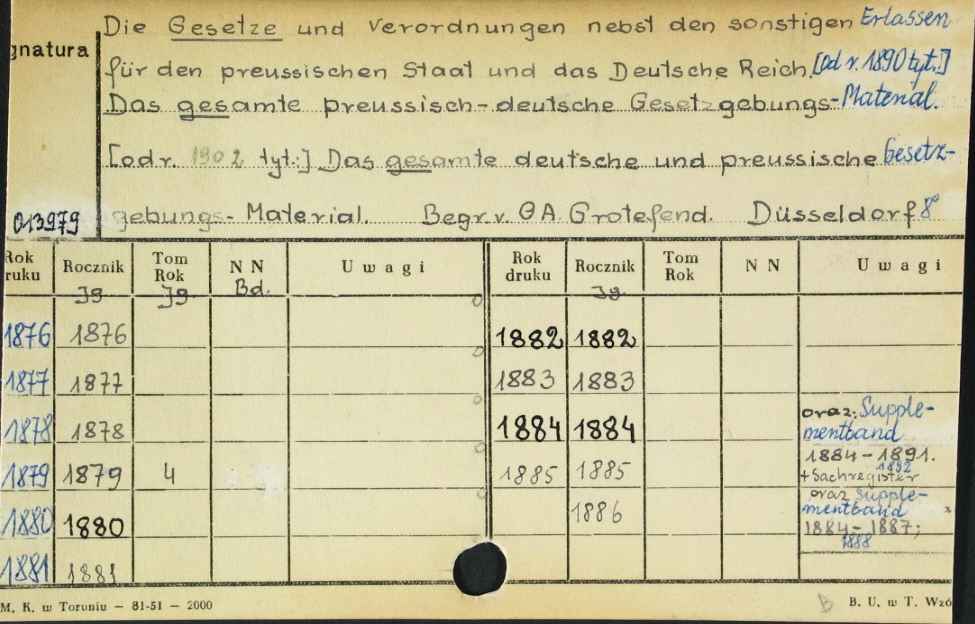 Die Gesetze und Verordnungen nebst den sonstigen Erlassen
gnatura
für den preussischen Staat und das Deutsche Reich. [od r. 1890 tyt.:]
Das gesamte preussisch-deutsche Gesetzgebungs-Material.
[od r. 1902 tyt.:] Das gesamte deutsche und preussische Gesetz-
013979 gebungs-Material. Begr. v. GA Grotefend. Düsseldorf 8°
Rok druku Rocznik Tom Rok NN Uwagi Rok druku Rocznik Tom Rok NN Uwagi
Jg Jg. Bd. Jg.
1876 1876 1882 1882
1877 1877 1883 1883
1878 1878 1884 1884 oraz: Supple-
mentband
1884-1891.
1879 1879 4 1885 1885 1892
+Sachregister
1880 1880 1886 oraz Supple-
mentband
1884-1887;
1888
1881 1881
M. K. w Toruniu — 81-51 — 2000 B B. U. w T. Wzó